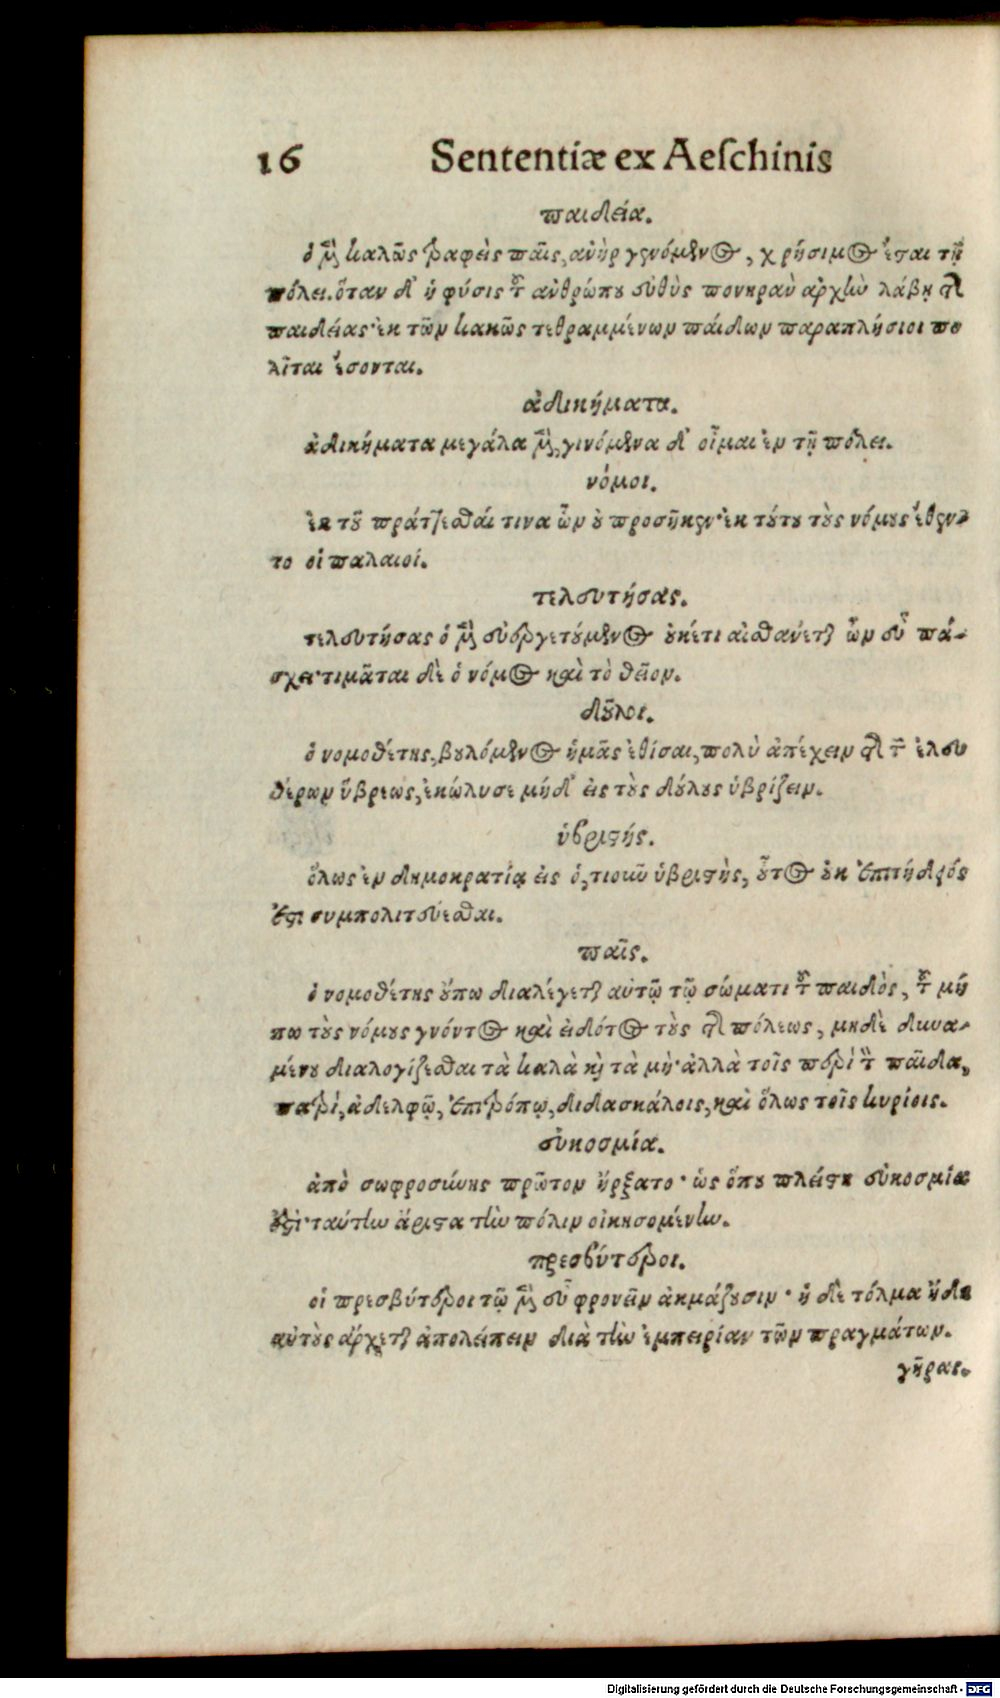 16 Sententiæ ex Aeſchinis
παιδεία.
ὁ μὲν καλῶς τραφεὶς παῖς, ἀνὴρ γενόμενος, χρήσιμος ἔσται τῇ
πόλει. ὅταν δ' ἡ φύσις τοῦ ἀνθρώπου εὐθὺς πονηρὰν ἀρχὴν λάβῃ τῆς
παιδείας· ἐκ τῶν κακῶς τεθραμμένων παίδων παραπλήσιοι πο
λῖται ἔσονται.
ἀδικήματα.
ἀδικήματα μεγάλα μὲν, γινόμενα δ' οἶμαι ἐν τῇ πόλει.
νόμοι.
ἐκ τοῦ πράττεσθαί τινα ὧν οὐ προσῆκεν· ἐκ τούτου τοὺς νόμους ἔθεν-
το οἱ παλαιοί.
τελευτήσας.
τελευτήσας ὁ μὲν εὐεργετούμενος οὐκέτι αἰσθάνεται ὧν εὖ πά-
σχει· τιμᾶται δὲ ὁ νόμος καὶ τὸ θεῖον.
δοῦλοι.
ὁ νομοθέτης, βουλόμενος ἡμᾶς ἐθίσαι, πολὺ ἀπέχειν τῆς τῶν ἐλευ
θέρων ὕβρεως, ἐκώλυσε μήδ' εἰς τοὺς δούλους ὑβρίζειν.
ὑβριστής.
ὅλως ἐν δημοκρατίᾳ εἰς ὁ, τιοῦν ὑβριστὴς, οὗτος οὐκ ἐπιτήδειός
ἐστι συμπολιτεύεσθαι.
παῖς.
ὁ νομοθέτης οὔπω διαλέγεται αὐτῷ τῷ σώματι τοῦ παιδὸς, τοῦ μή
πω τοὺς νόμους γνόντος καὶ εἰδότος τοὺς τῆς πόλεως, μηδὲ δυνα-
μένου διαλογίζεσθαι τὰ καλὰ καὶ τὰ μὴ· ἀλλὰ τοῖς περὶ τὸν παῖδα,
πατρί, ἀδελφῷ, ἐπιτρόπῳ, διδασκάλοις, καὶ ὅλως τοῖς κυρίοις.
εὐκοσμία.
ἀπὸ σωφροσύνης πρῶτον ἤρξατο· ὡς ὅπου πλείστη εὐκοσμία
ἐστὶ· ταύτην ἄριστα τὴν πόλιν οἰκησομένην.
πρεσβύτεροι.
οἱ πρεσβύτεροι τῷ μὲν εὖ φρονεῖν ἀκμάζουσιν· ἡ δὲ τόλμα ἤδη
αὐτοὺς ἄρχεται ἀπολείπειν διὰ τὴν ἐμπειρίαν τῶν πραγμάτων.
γῆρας.
Digitalisierung gefördert durch die Deutsche Forschungsgemeinschaft - DFG